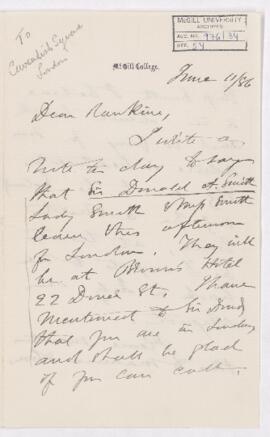 McGILL UNIVERSITY
ARCHIVES
ACC. NO. 976/34
REF. 54
To
Cavendish Square
London
McGill College.
June 11/86
Dear Rankine,
I write a
note to day to say
that Sir Donald A. Smith
Lady Smith & Miss Smith
leave this afternoon
for London. They will
be at Hotel
22 Dover St. I have
mentioned to Sir Donald
that you are in London
and shall be glad
if you can call.